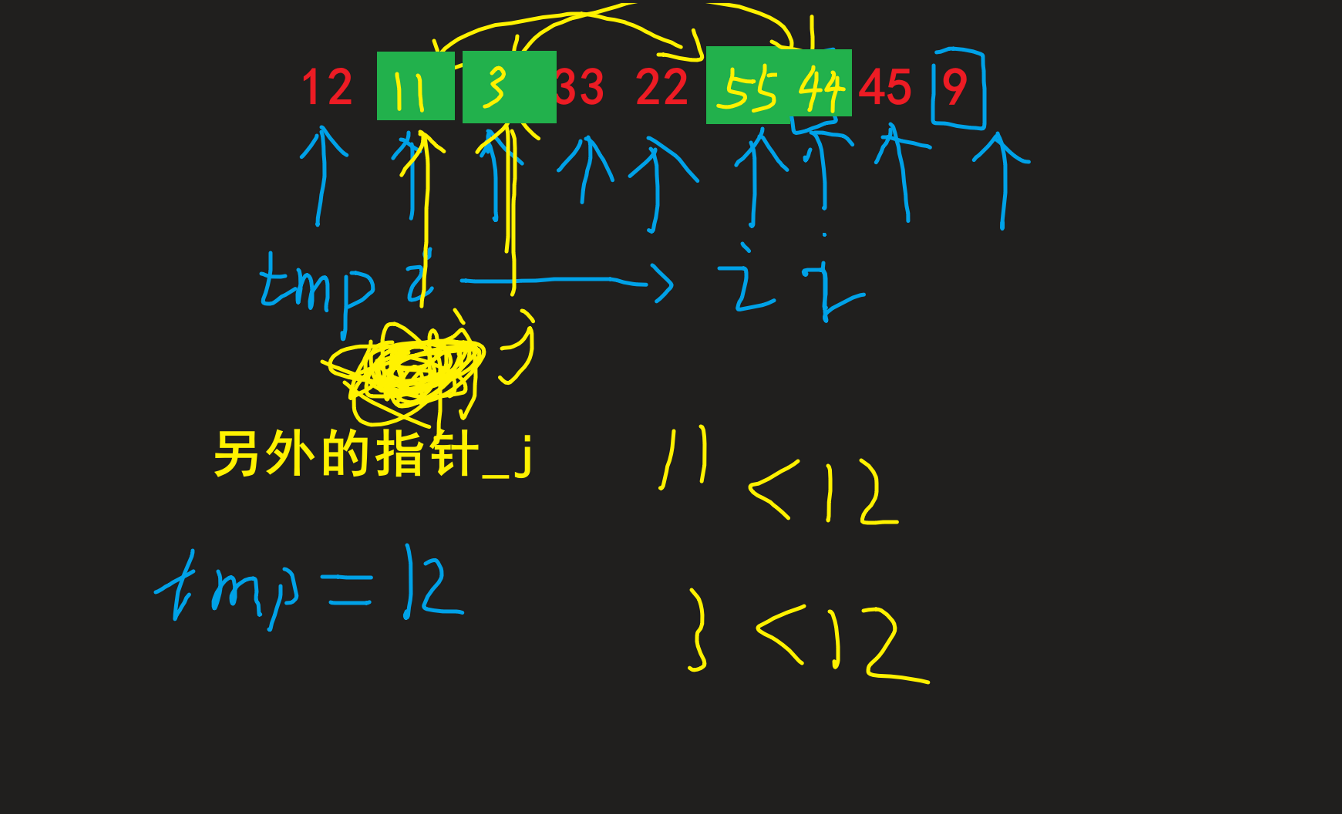 12 11 3 33 22 55 44 45 9
tmp i i i
j
另外的指针_j
11 < 12
tmp = 12
3 < 12